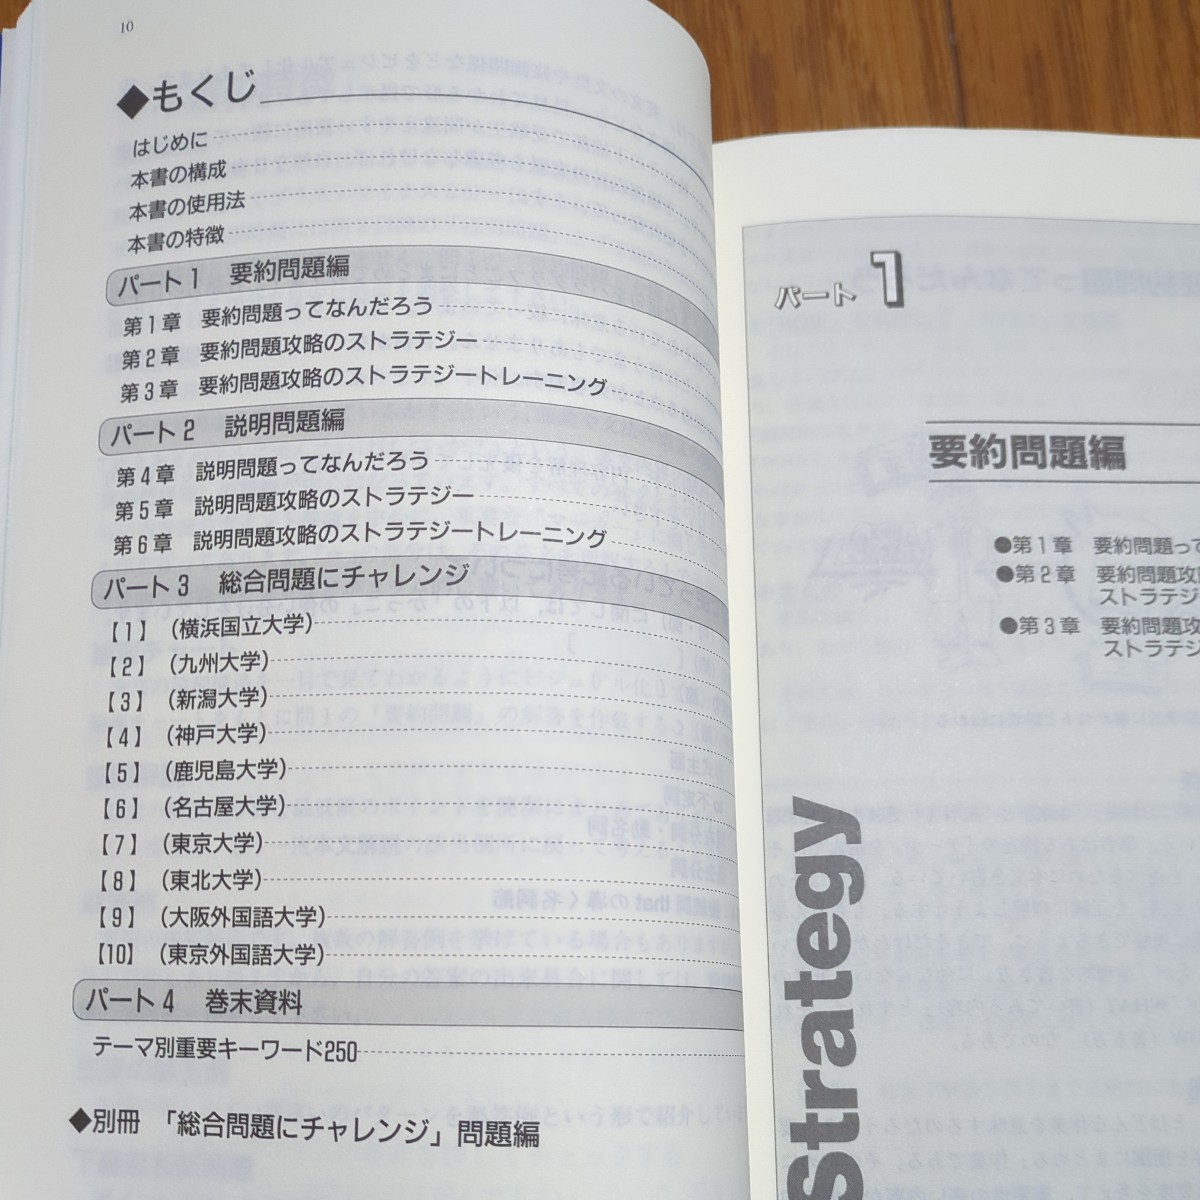 10
◆もくじ
はじめに
本書の構成
本書の使用法
本書の特徴
パート1 要約問題編
第1章 要約問題ってなんだろう
第2章 要約問題攻略のストラテジー
第3章 要約問題攻略のストラテジートレーニング
パート2 説明問題編
第4章 説明問題ってなんだろう
第5章 説明問題攻略のストラテジー
第6章 説明問題攻略のストラテジートレーニング
パート3 総合問題にチャレンジ
【1】(横浜国立大学)
【2】(九州大学)
【3】(新潟大学)
【4】(神戸大学)
【5】(鹿児島大学)
【6】(名古屋大学)
【7】(東京大学)
【8】(東北大学)
【9】(大阪外国語大学)
【10】(東京外国語大学)
パート4 巻末資料
テーマ別重要キーワード250
◆別冊 「総合問題にチャレンジ」問題編
パート 1
要約問題編
●第1章 要約問題って
●第2章 要約問題攻
ストラテジ
●第3章 要約問題攻
ストラテジ
strategy